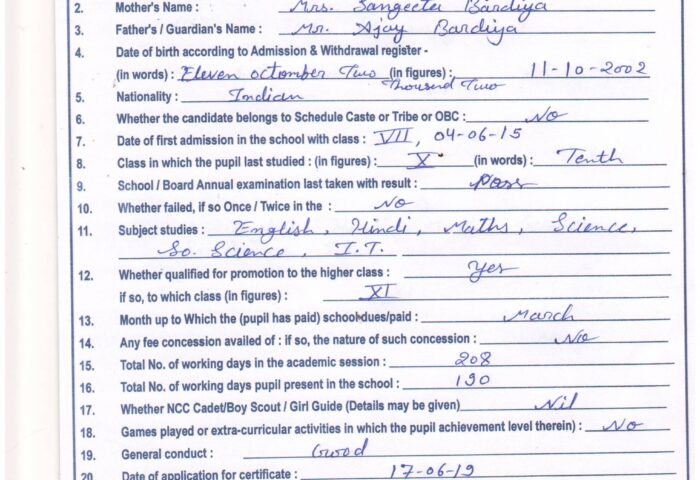 2. Mother's Name : Mrs. Sangeeta Bardiya
3. Father's / Guardian's Name : Mr. Ajay Bardiya
4. Date of birth according to Admission & Withdrawal register -
(in words) : Eleven octomber Two (in figures) : 11-10-2002
Thousend Two
5. Nationality : Indian
6. Whether the candidate belongs to Schedule Caste or Tribe or OBC : No
7. Date of first admission in the school with class : VII, 04-06-15
8. Class in which the pupil last studied : (in figures) : X (in words) : Tenth
9. School / Board Annual examination last taken with result : Pass
10. Whether failed, if so Once / Twice in the : No
11. Subject studies : English, Hindi, Maths, Science,
So. Science, I.T.
12. Whether qualified for promotion to the higher class : Yes
if so, to which class (in figures) : XI
13. Month up to Which the (pupil has paid) schooldues/paid : March
14. Any fee concession availed of : if so, the nature of such concession : No
15. Total No. of working days in the academic session : 208
16. Total No. of working days pupil present in the school : 190
17. Whether NCC Cadet/Boy Scout / Girl Guide (Details may be given) Nil
18. Games played or extra-curricular activities in which the pupil achievement level therein) : No
19. General conduct : Good
20. Date of application for certificate : 17-06-19